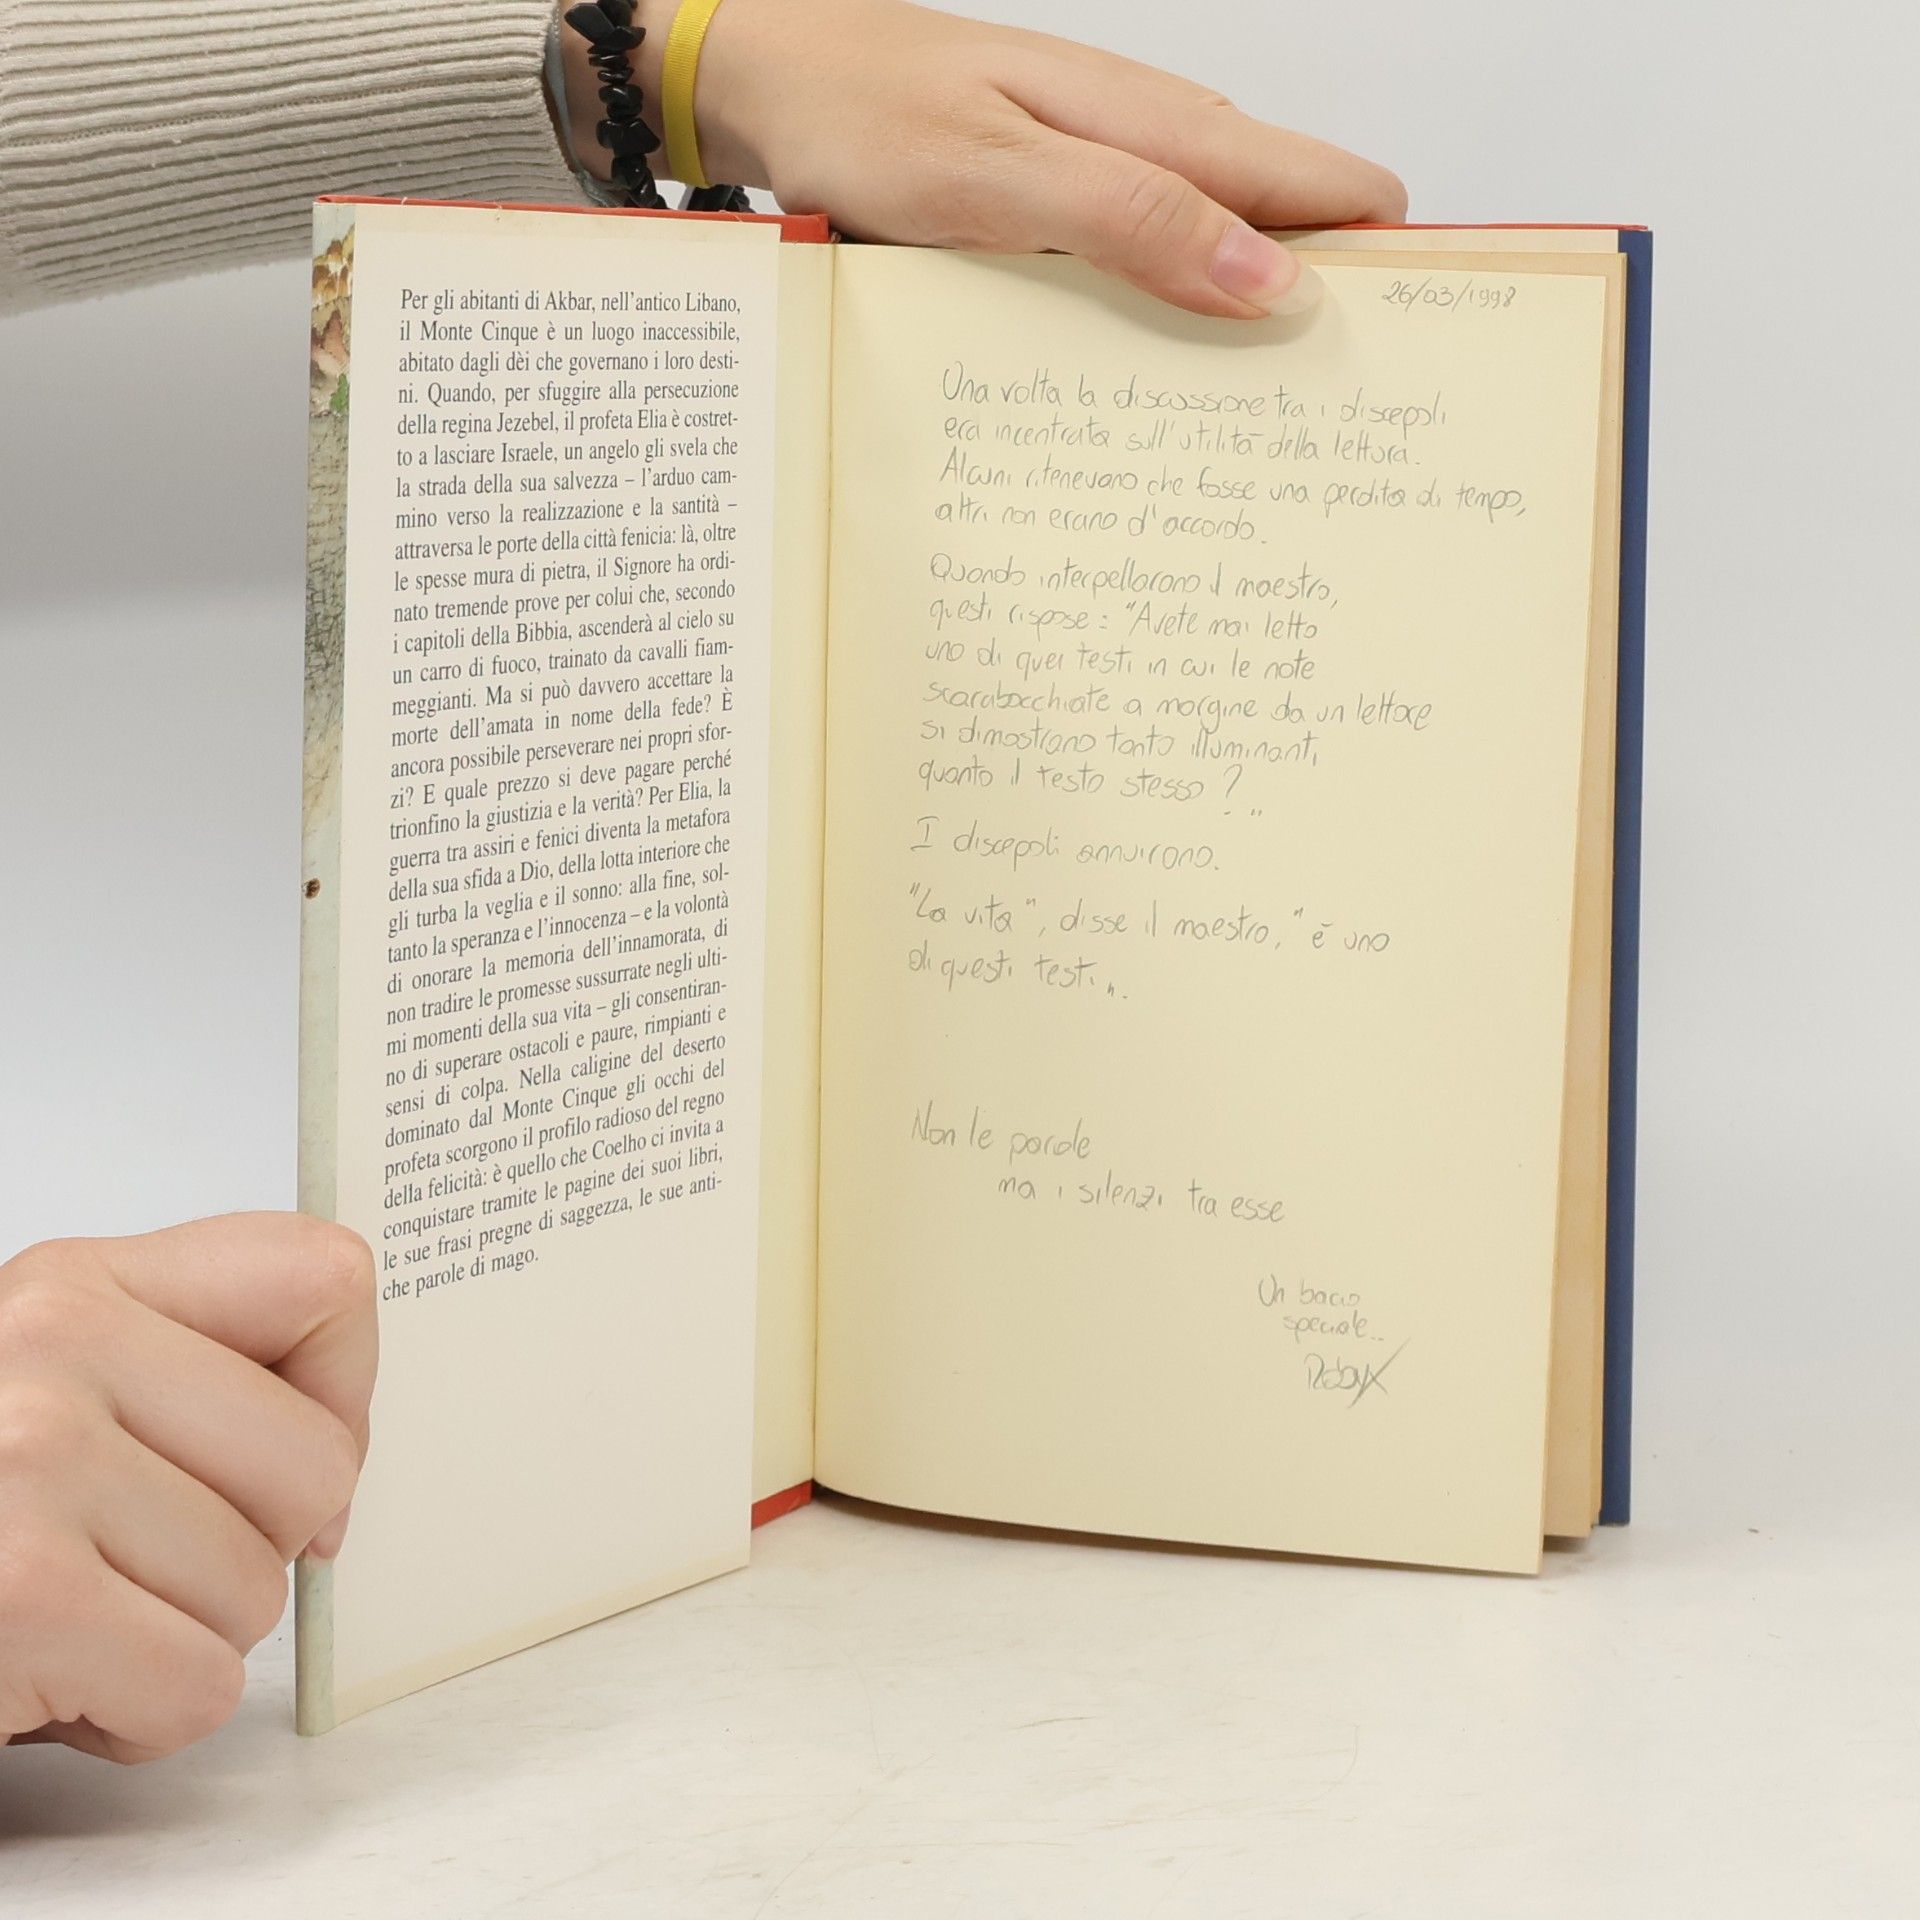 Per gli abitanti di Akbar, nell'antico Libano,
il Monte Cinque è un luogo inaccessibile,
abitato dagli dèi che governano i loro desti-
ni. Quando, per sfuggire alla persecuzione
della regina Jezebel, il profeta Elia è costret-
to a lasciare Israele, un angelo gli svela che
la strada della sua salvezza – l'arduo cam-
mino verso la realizzazione e la santità –
attraversa le porte della città fenicia: là, oltre
le spesse mura di pietra, il Signore ha ordi-
nato tremende prove per colui che, secondo
i capitoli della Bibbia, ascenderà al cielo su
un carro di fuoco, trainato da cavalli fiam-
meggianti. Ma si può davvero accettare la
morte dell'amata in nome della fede? È
ancora possibile perseverare nei propri sfor-
zi? E quale prezzo si deve pagare perché
trionfino la giustizia e la verità? Per Elia, la
guerra tra assiri e fenici diventa la metafora
della sua sfida a Dio, della lotta interiore che
gli turba la veglia e il sonno: alla fine, sol-
tanto la speranza e l'innocenza – e la volontà
di onorare la memoria dell'innamorata, di
non tradire le promesse sussurrate negli ulti-
mi momenti della sua vita – gli consentiran-
no di superare ostacoli e paure, rimpianti e
sensi di colpa. Nella caligine del deserto
dominato dal Monte Cinque gli occhi del
profeta scorgono il profilo radioso del regno
della felicità: è quello che Coelho ci invita a
conquistare tramite le pagine dei suoi libri,
le sue frasi pregne di saggezza, le sue anti-
che parole di mago.
26/03/1998
Una volta la discussione tra i discepoli
era incentrata sull'utilità della lettura.
Alcuni ritenevano che fosse una perdita di tempo,
altri non erano d'accordo.
Quando interpellarono il maestro,
questi rispose: "Avete mai letto
uno di quei testi in cui le note
scarabocchiate a margine da un lettore
si dimostrano tanto illuminanti
quanto il testo stesso?"
I discepoli annuirono.
"La vita", disse il maestro, "è uno
di questi testi".
Non le parole
ma i silenzi tra esse
Un bacio
speciale..